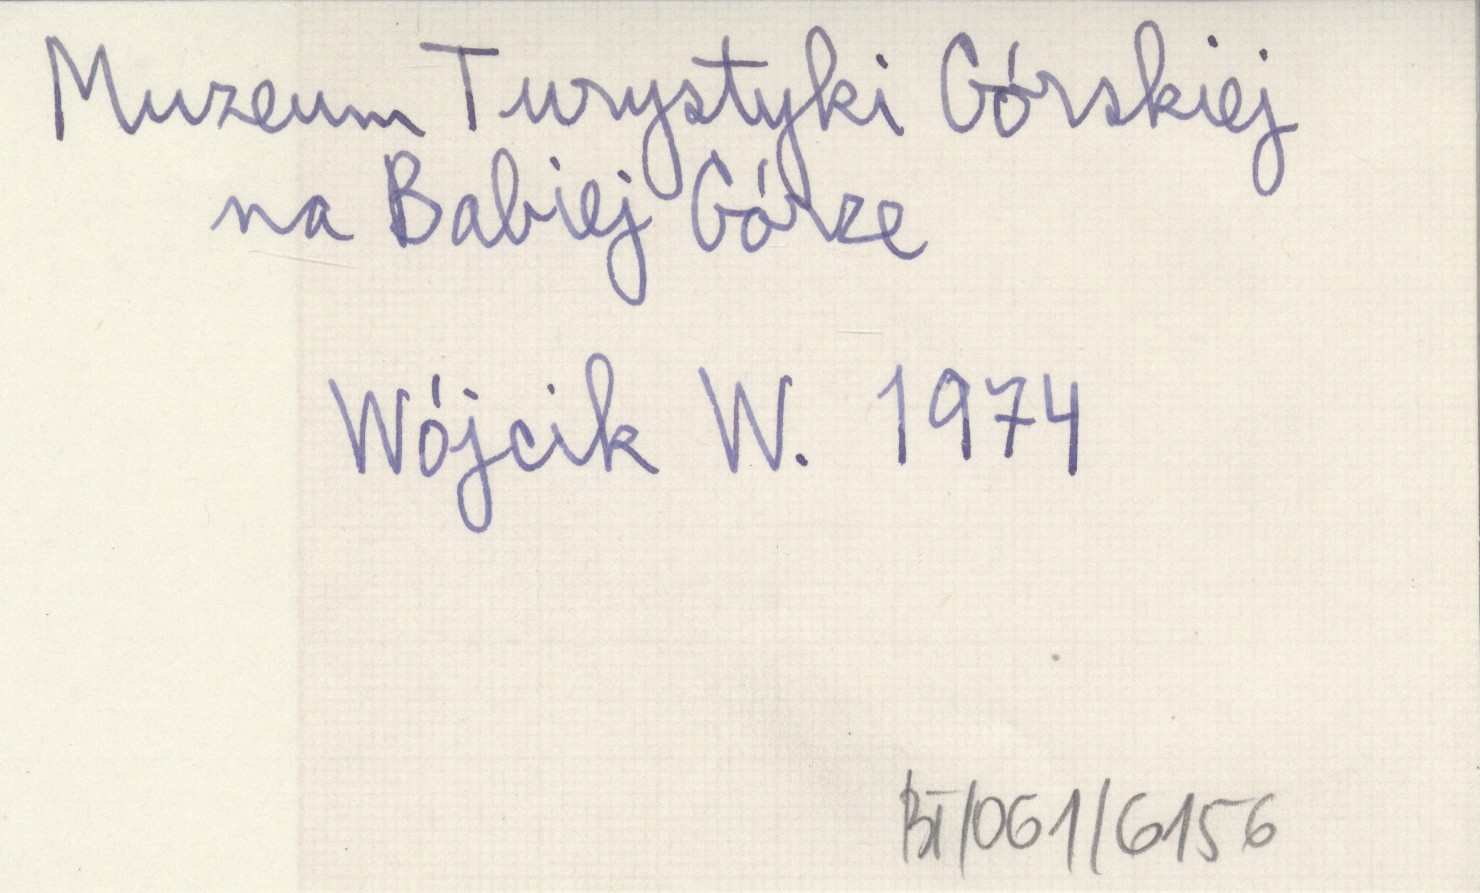 Muzeum Turystyki Górskiej
na Babiej Górze
Wójcik W. 1974
BI/061/6156